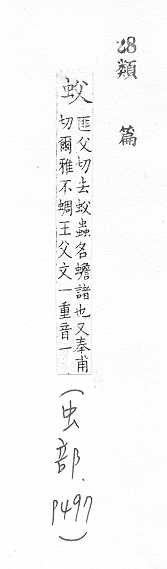 28類篇
蚥
匪父切去蚥蟲名蟾諸也又奉甫
切爾雅不蜩王父文一重音一
(虫部. P497)